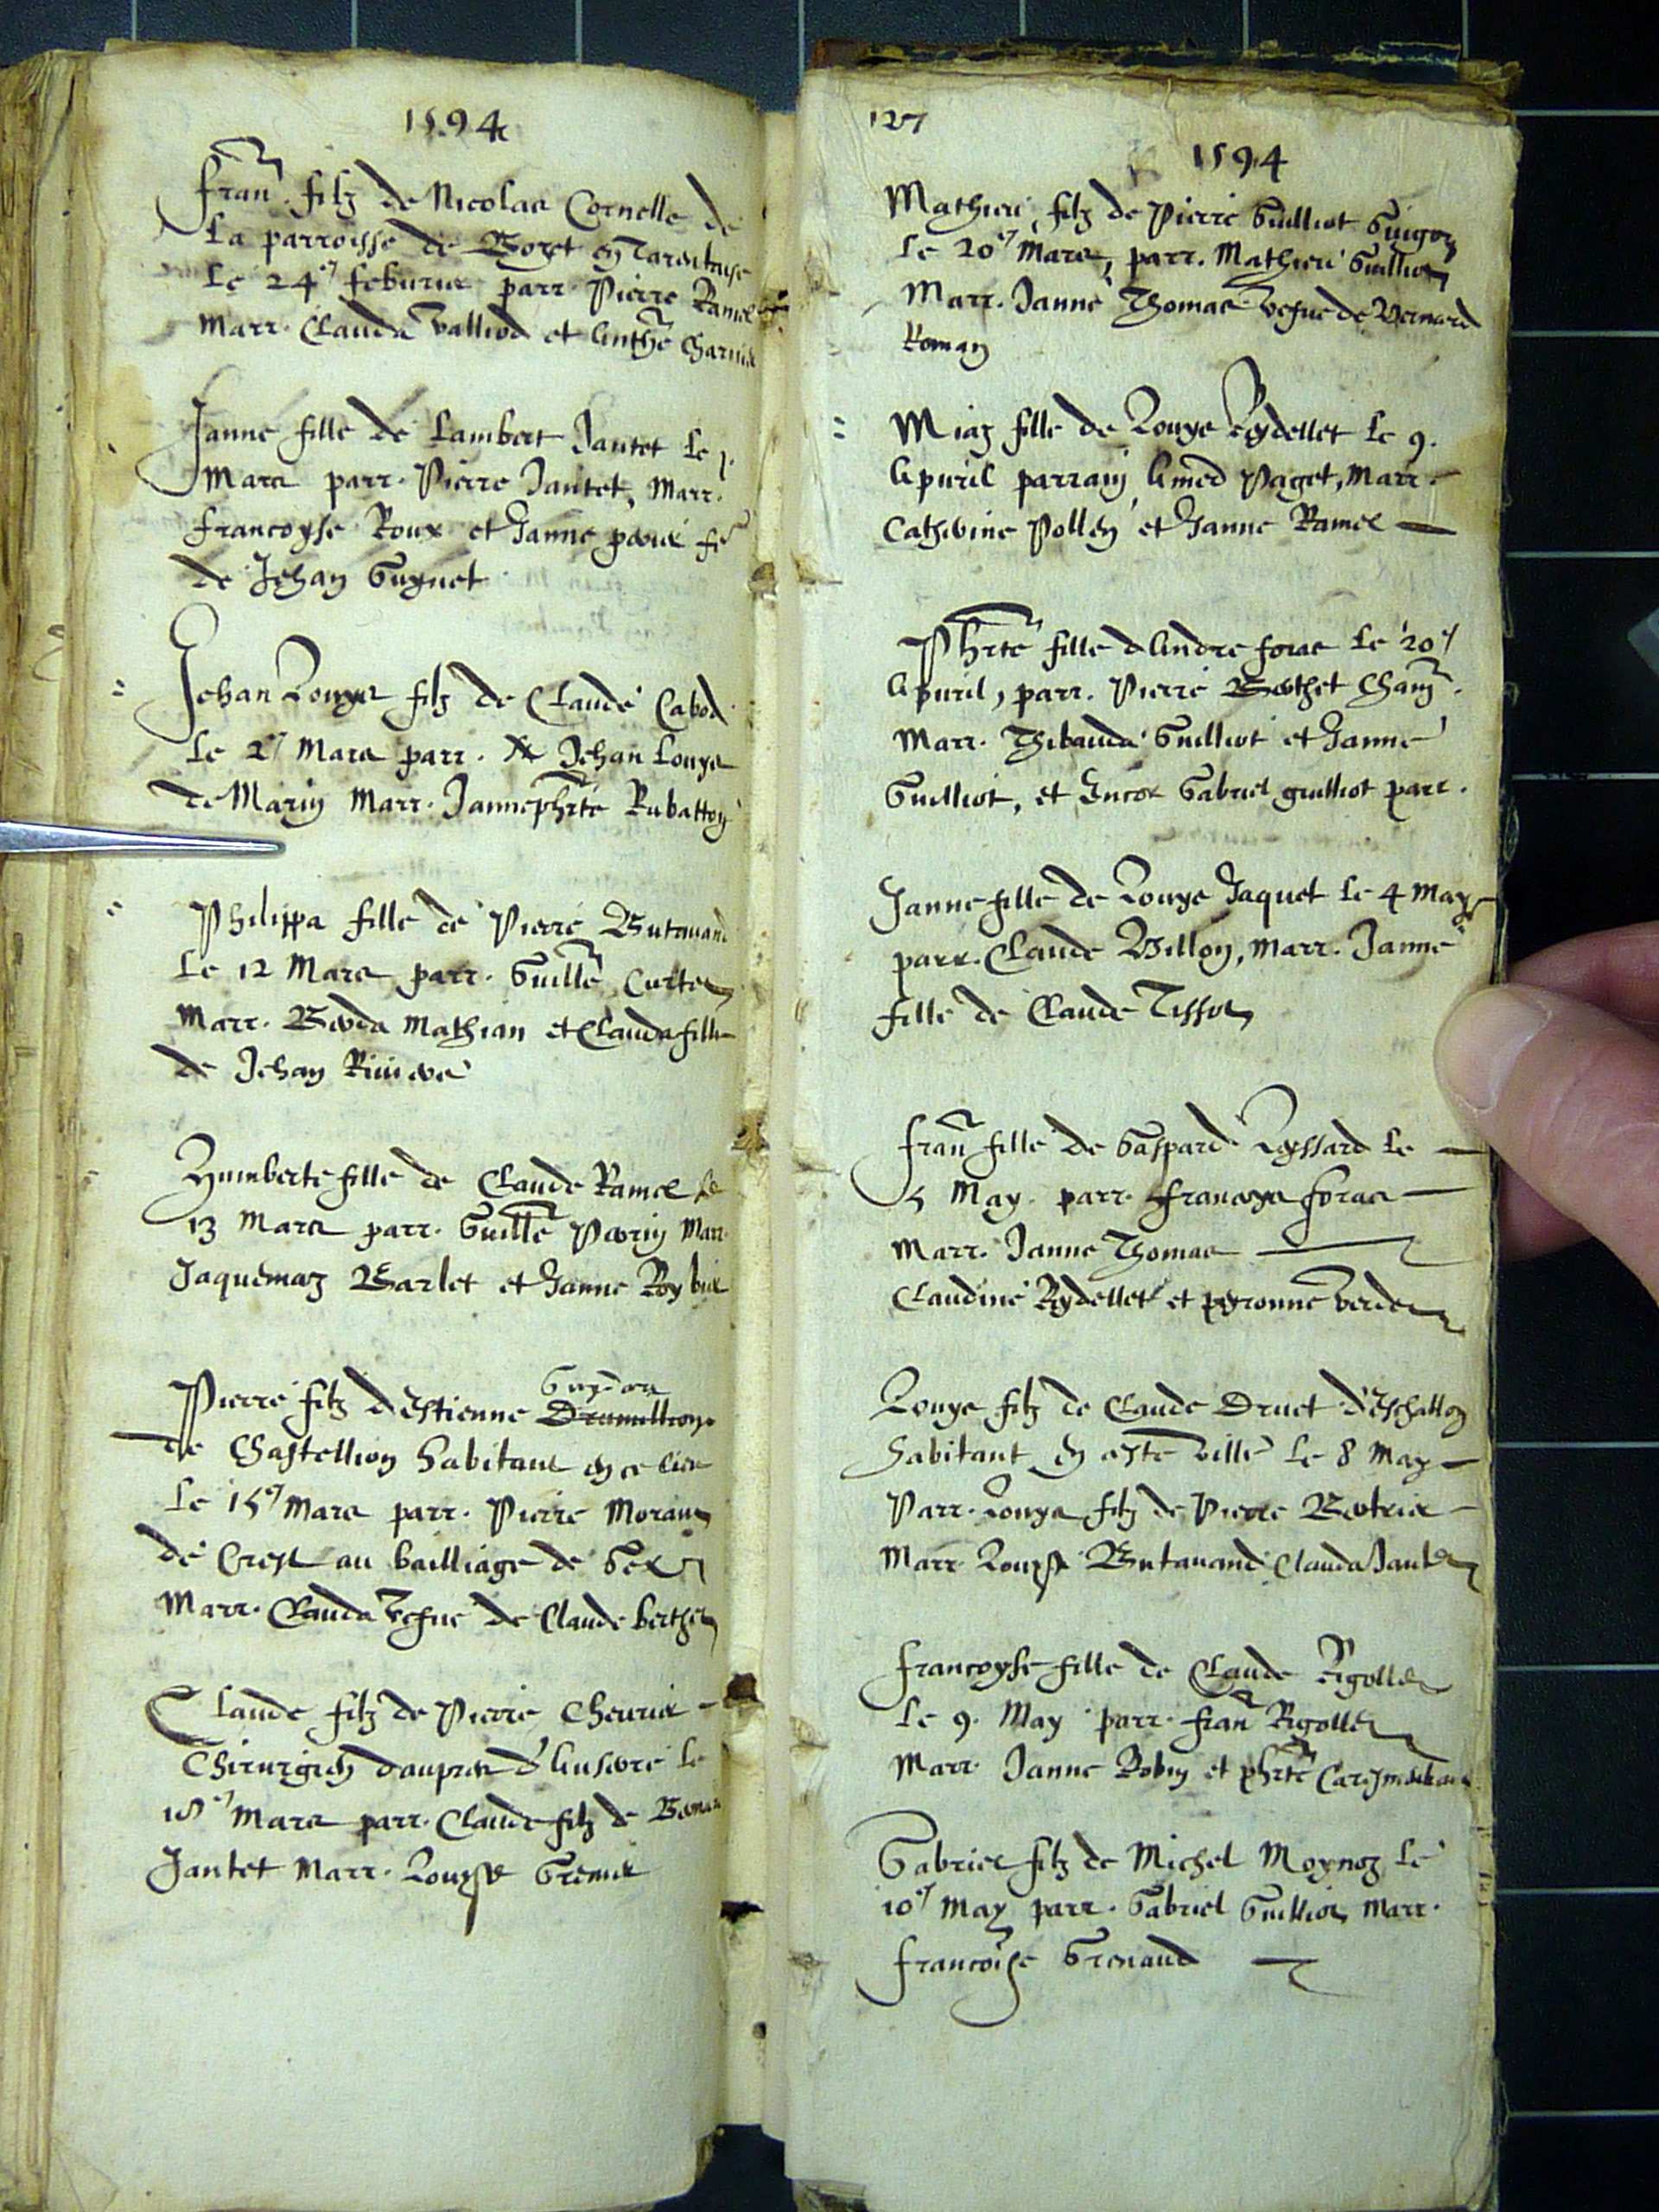 1594
Fran. filz de Nicolas Cornelle de
La parroisse de Bozet en Tarentaise
Le 24e feburier parr. Pierre Ramel
Marr. Clauda Valliod et Anthe
Janne fille de Lambert Jantet Le 1.
Mars parr. Pierre Jantet, Marr.
francoyse Roux et Janne fe
de Jehan Guynet
Jehan Louys filz de Claude Cabod
Le 2e Mars parr. Jehan Louys
de Marin Marr. Jannephrte Rubatton
Philippa fille de Pierre Butauand
Le 12 Mars parr. Guille Curtet
Marr. Berda Mathian et Clauda fille
de Jehan Riuiere
Humberte fille de Claude Ramel le
13 Mars parr. Guille Perrin Marr.
Jaquemaz Barlet et Janne
Pierre filz d'Estienne Guydon
de Chastellion habitant en ce lieu
Le 15e Mars parr. Pierre Morand
de Crest au bailliage de Gex
Marr. Clauda vefue de Claude berthet
Claude filz de Pierre Cheurier
Chirurgien daupres d'Auserre le
18e Mars parr. Claude filz de Bernard
Jantet Marr. Louyse Grenier
127
1594
Mathieu, filz de Pierre Guilliot Guigon
Le 20e Mars, parr. Mathieu Guilliot
Marr. Janne Thomas vefue de Bernard
Roman
Miaz fille de Louys Reydellet Le 9.
Apuril parrain Amed Paget, Marr.
Catherine Pollen et Janne Ramel
Phrte fille d'Andre foras Le 20e
Apuril, parr. Pierre Berthet Chany.
Marr. Thibauda Guilliot et Janne
Guilliot, et Encor Gabriel guilliot parr.
Janne fille de Louys Jaquet le 4 May
parr. Claude Billon, Marr. Janne
fille de Claude Tissot
Fran fille de Gaspard Leyssard Le
5 May. parr. Francoys foras
Marr. Janne Thomas
Claudine Reydellet et peronne verdet
Louys filz de Claude Druet d'Eschallon
habitant en ceste ville Le 8 May
Parr. Louys filz de Pierre Bertrier
Marr. Louyse Butauand Clauda Jantet
Francoyse fille de Claude Rigollet
Le 9. May parr. fran Rigollet
Marr. Janne Robin et phrte Caresmentrant
Gabriel filz de Michel Moynoz Le
10e May parr. Gabriel Guilliot Marr.
francoise Grenaud